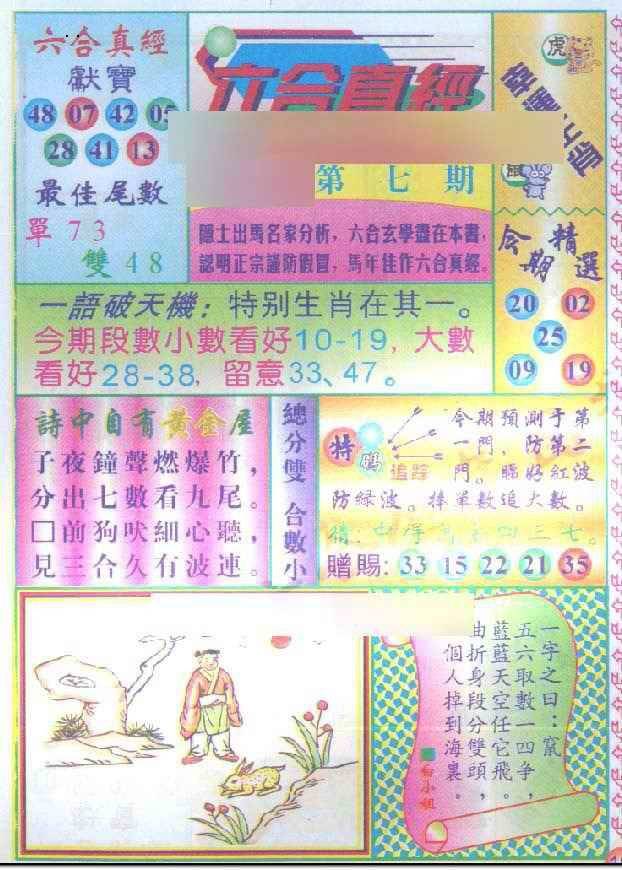 六合真經
獻寶
48 07 42 05
28 41 13
最佳尾數
單73
雙48
六合真經
第七期
隱士出馬名家分析，六合玄學盡在本書，
認明正宗謹防假冒，馬年佳作六合真經。
虎
鼠
今期精選
20 02
25
09 19
一語破天機：特别生肖在其一。
今期段數小數看好10-19，大數
看好28-38，留意33、47。
詩中自有黃金屋
子夜鐘聲燃爆竹，
分出七數看九尾。
□前狗吠細心聽，
見三合久有波連。
總分雙 合數小
特碼
追踪
今期預測于第
一門，防第二
門。睇好紅波
防緑波。捧單數追大數。
贈賜：33 15 22 21 35
一字之曰：竄。
五六取數一四争，
藍藍天空任它飛。
曲折身段分雙頭，
個人掉到海裏。
白小姐